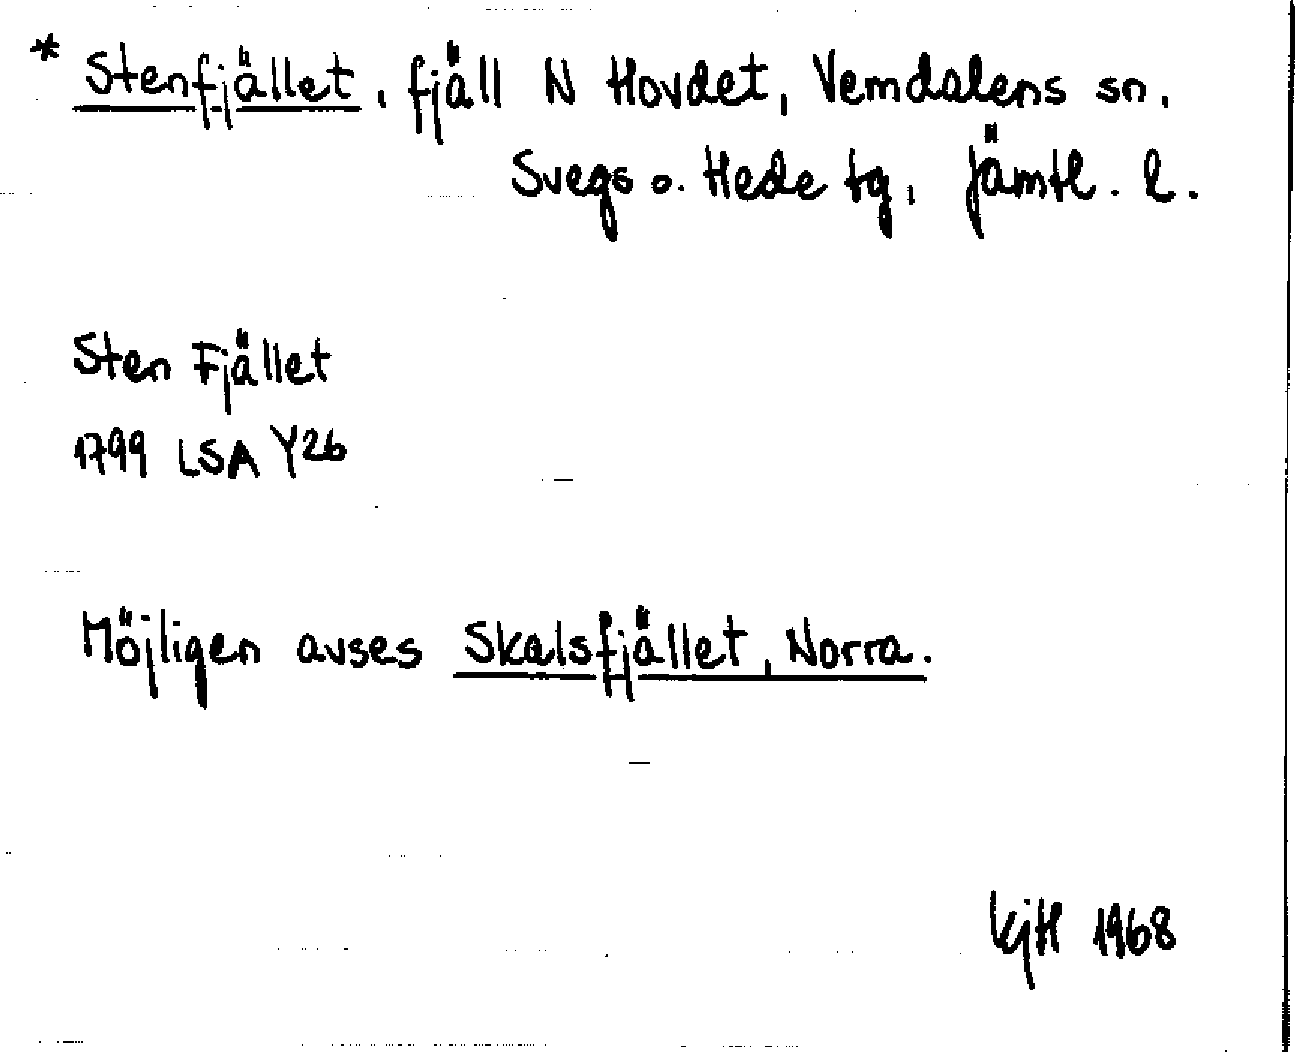 * Stenfjället, fjäll N Hovdet, Vemdalens sn,
Svegs o. Hede tg, Jämtl. l.
Sten Fjället
1799 LSA Y26
Möjligen avses Skalsfjället, Norra.
KjH 1968